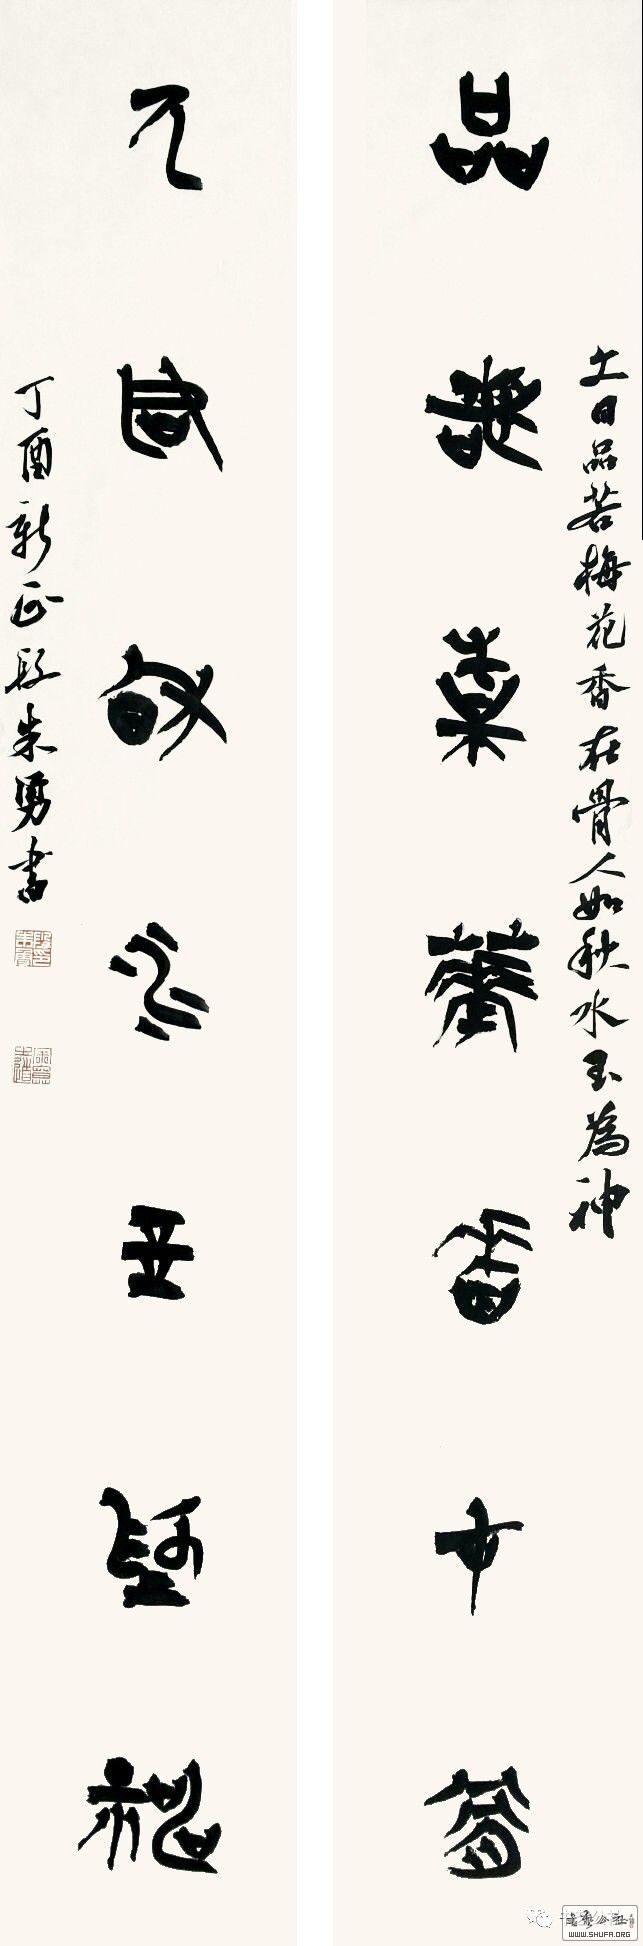 文曰品若梅花香在骨人如秋水玉為神
品若某華香才骨
人如秋水玉為神
丁酉新正段朱勇書
WWW.SHUFA.ORG